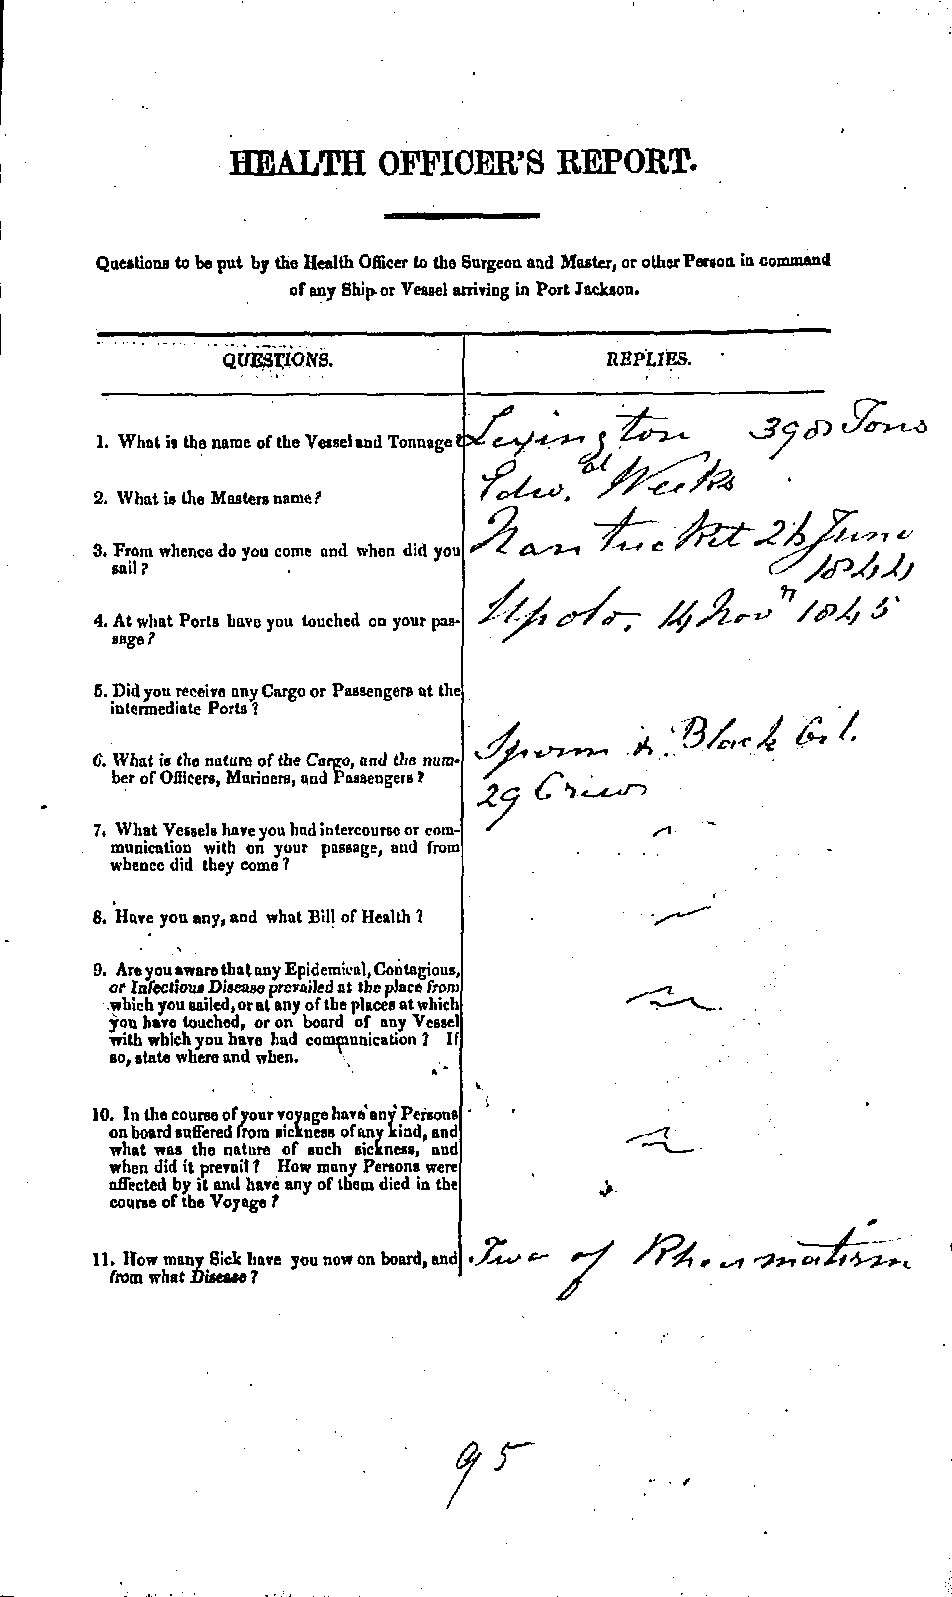 HEALTH OFFICER'S REPORT.
Questions to be put by the Health Officer to the Surgeon and Master, or other Person in command
of any Ship or Vessel arriving in Port Jackson.
QUESTIONS.
REPLIES.
1. What is the name of the Vessel and Tonnage?
Lexington 398 Tons
2. What is the Masters name?
Edw. Weeks
3. From whence do you come and when did you
sail?
Nantucket June
1844
4. At what Ports have you touched on your pas-
sage?
Upolo. 14 Novr 1845
5. Did you receive any Cargo or Passengers at the
intermediate Ports?
6. What is the nature of the Cargo, and the num-
ber of Officers, Mariners, and Passengers?
Sperm & Black Oil.
29 Crew
7. What Vessels have you had intercourse or com-
munication with on your passage, and from
whence did they come?
8. Have you any, and what Bill of Health?
9. Are you aware that any Epidemical, Contagious,
or Infectious Disease prevailed at the place from
which you sailed, or at any of the places at which
you have touched, or on board of any Vessel
with which you have had communication? If
so, state where and when.
10. In the course of your voyage have any Persons
on board suffered from sickness of any kind, and
what was the nature of such sickness, and
when did it prevail? How many Persons were
affected by it and have any of them died in the
course of the Voyage?
11. How many Sick have you now on board, and
from what Disease?
Two of Rheumatism
95